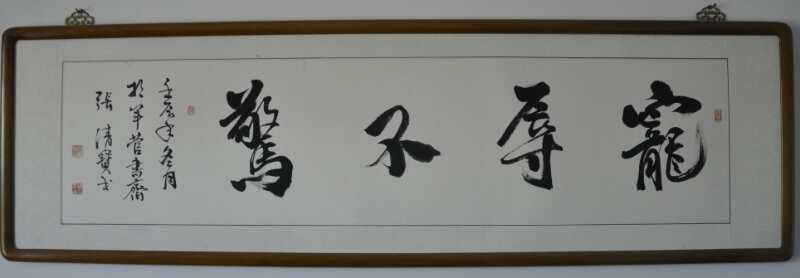 寵辱不驚
壬辰年冬月
於羊营書齋
張清賢書